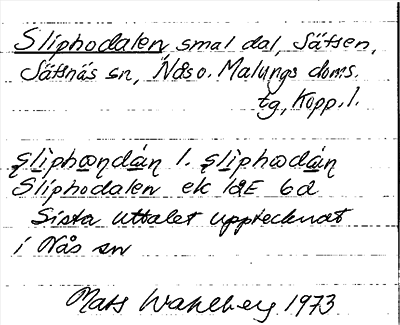 Sliphodalen, smal dal, Sätsen,
Sätsnäs sn, Nås o. Malungs doms.
tg, Kopp. l.
sliphωndán l. sliphωdán
Sliphodalen ek 12E 6d
Sista uttalet upptecknat
i Nås sn
Mats Wahlberg 1973